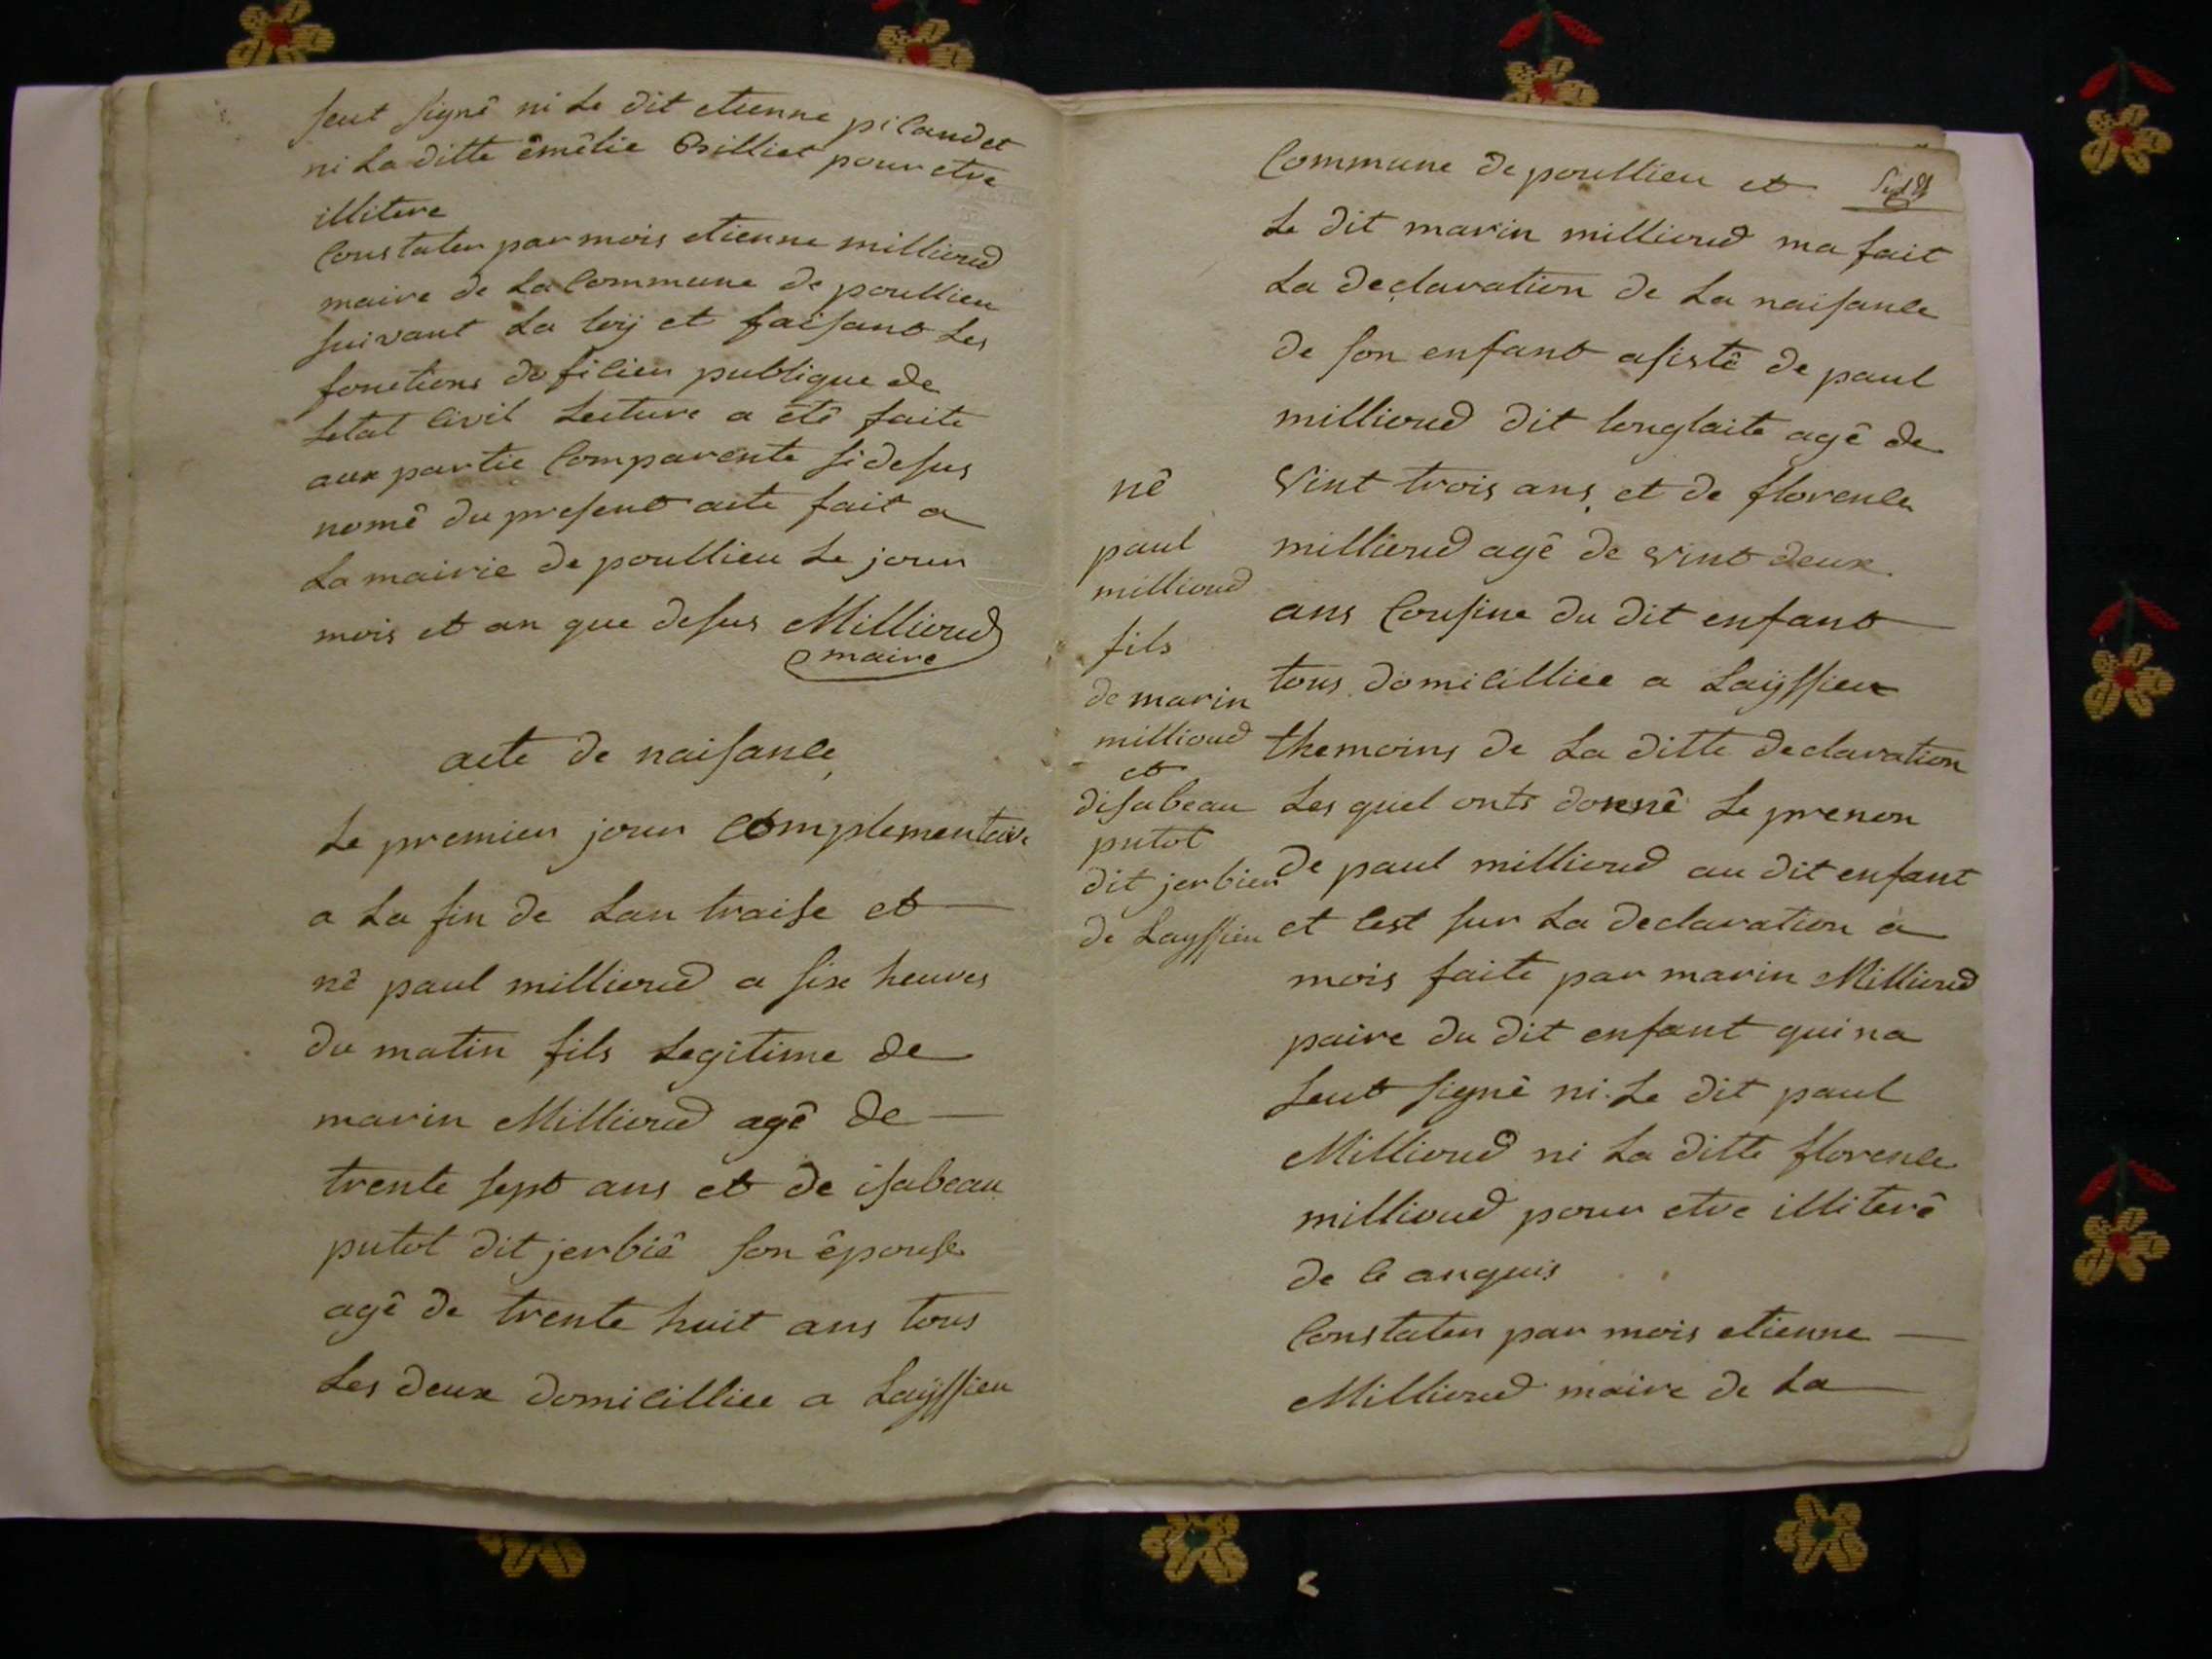 seut signê ni Le dit etienne pilaudet
ni La ditte êmêlie Billiet pour etre
illitere
Constater par mois etienne millioud
maire de La Commune de poullieu
suivant La loÿ et faisant Les
fonctions dofilier publique de
Letat Civil Lecture a êtê faite
aux partie Comparente sidesus
nomê du present acte fait a
La mairie de poullieu Le jour
mois et an que desus Millioud
maire
acte de naisance
Le premier jour Complementaire
a La fin de Lan traise et
nê paul millioud a six heures
du matin fils Legitime de
marin Millioud agê de
trente sept ans et de isabeau
putot dit jerbiê son êpouse
agê de trente huit ans tous
Les deux domicilliee a Layssieu
Commune de poullieu et
Le dit marin millioud ma fait
La declaration de La naisance
de son enfant asistê de paul
millioud dit longlaite agê de
vint trois ans et de florence
millioud agê de vint deux
ans Cousine du dit enfant
tous domicilliee a Laÿssieu
themoins de La ditte declaration
Les quel onts donnê Le prenon
de paul millioud au dit enfant
et Cest sur La declaration a
mois faite par marin Millioud
paire du dit enfant qui na
seut signê ni Le dit paul
Millioud ni La ditte florence
millioud pour etre illiterê
de Ce anquis
Constater par mois etienne
Millioud maire de La
nê
paul
millioud
fils
de marin
millioud
et
disabeau
putot
dit jerbier
de Layssieu